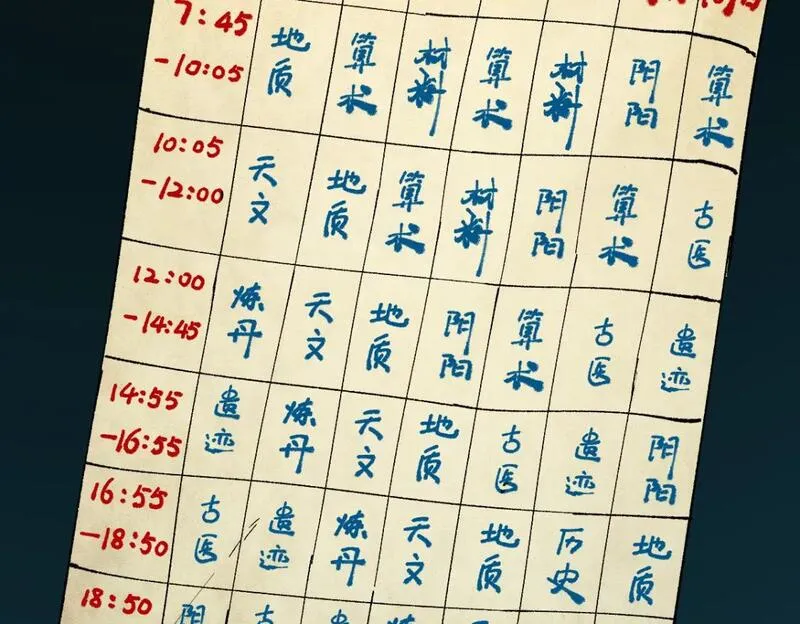 7:45 -10:05 地质 算术 材料 算术 材料 阴阳 算术
10:05 -12:00 天文 地质 算术 材料 阴阳 算术 古医
12:00 -14:45 炼丹 天文 地质 阴阳 算术 古医 遗迹
14:55 -16:55 遗迹 炼丹 天文 地质 古医 遗迹 阴阳
16:55 -18:50 古医 遗迹 炼丹 天文 地质 历史 地质
18:50 阴